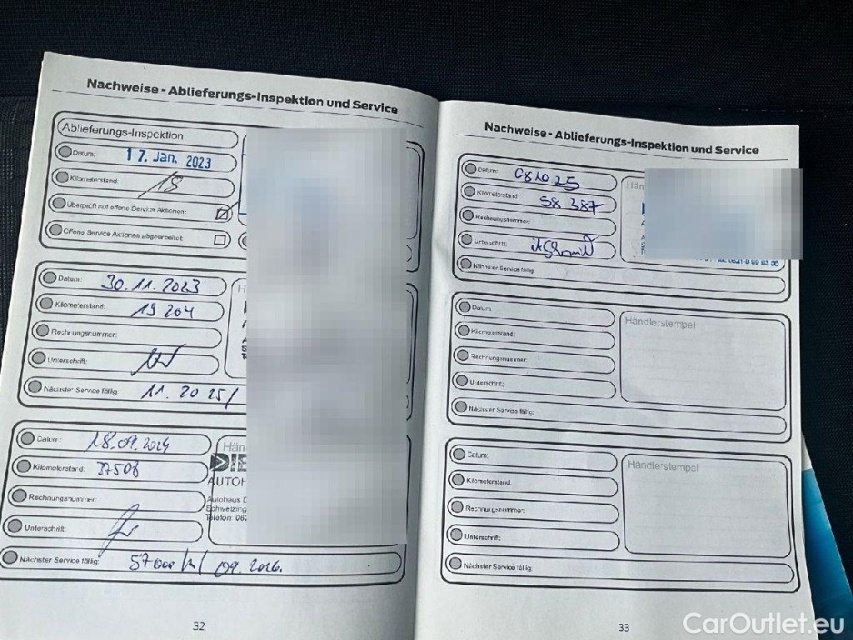 Nachweise - Ablieferungs-Inspektion und Service
Ablieferungs-Inspektion
Datum: 17. Jan. 2023
Kilometerstand: 18
Überprüft auf offene Service Aktionen:
Offene Service Aktionen abgearbeitet:
Datum: 30.11.2023
Kilometerstand: 19 204
Rechnungsnummer:
Unterschrift:
Nächster Service fällig: 11.2025/
Datum: 18.09.2024
Kilometerstand: 37508
Hän
DIE
AUTOH
Rechnungsnummer:
Autohaus D
Schwetzing
Telefon: 062
Unterschrift:
Nächster Service fällig: 57000 km/ 09.2026.
32
Nachweise - Ablieferungs-Inspektion und Service
Datum: 081025
Hän
Kilometerstand: 58 387
Rechnungsnummer:
Unterschrift:
Nächster Service fällig:
Datum:
Händlerstempel
Kilometerstand:
Rechnungsnummer:
Unterschrift:
Nächster Service fällig:
Datum:
Händlerstempel
Kilometerstand:
Rechnungsnummer:
Unterschrift:
Nächster Service fällig:
33
CarOutlet.eu